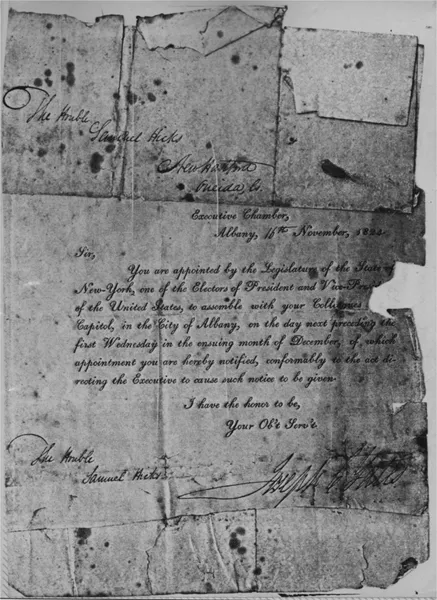 The Honble
Samuel Hicks
New Hartford
Oneida Co.
Executive Chamber,
Albany, 16th November, 1824
Sir,
You are appointed by the Legislature of the State of
New-York, one of the Electors of President and Vice-Pres
of the United States, to assemble with your Colleagues
Capitol, in the City of Albany, on the day next preceding the
first Wednesday in the ensuing month of December, of which
appointment you are hereby notified, conformably to the act di-
recting the Executive to cause such notice to be given.
I have the honor to be,
Your Ob't Serv't.
The Honble
Samuel Hicks
Joseph C. Yates